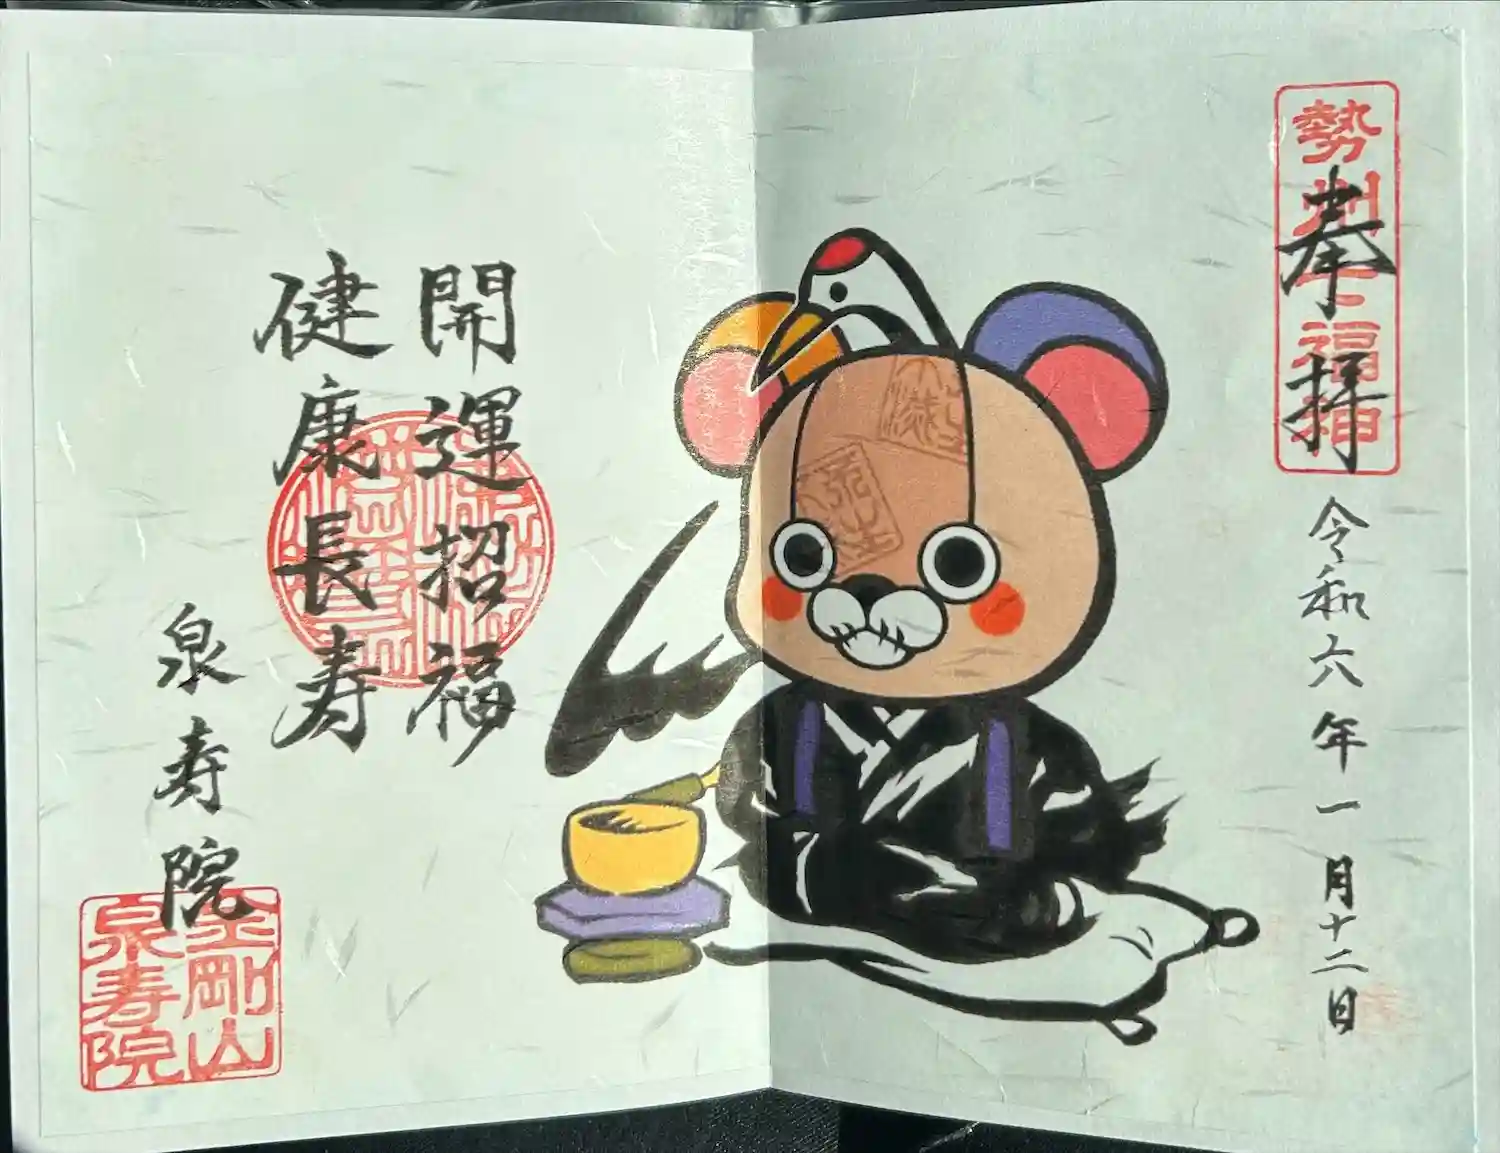 奉拝
令和六年一月十二日
勢州七福神
開運招福
健康長寿
泉寿院
金剛山
泉寿院